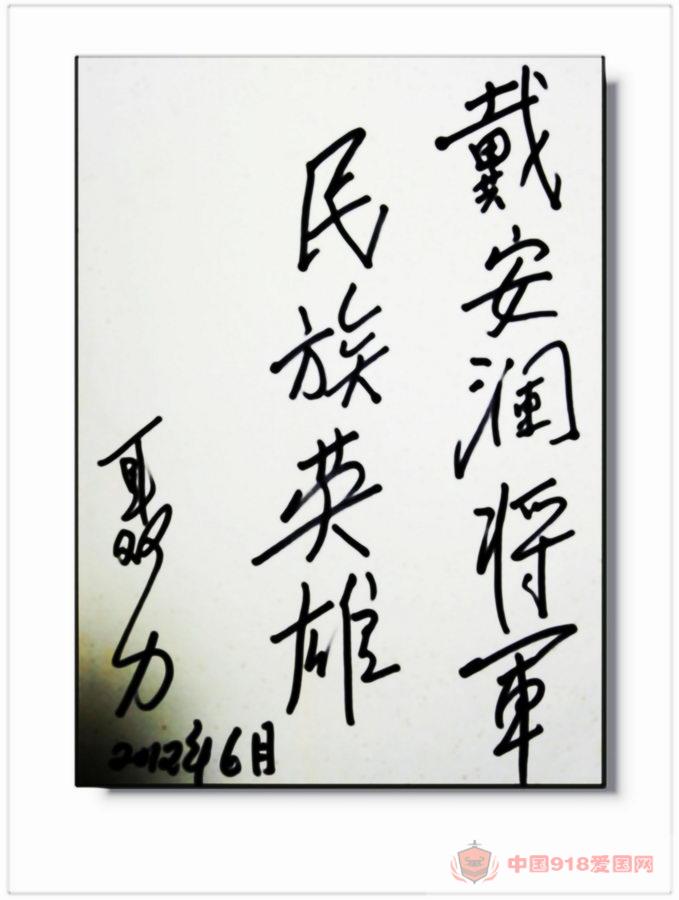 戴安澜将軍
民族英雄
聂力
2012年6月
中国918爱国网